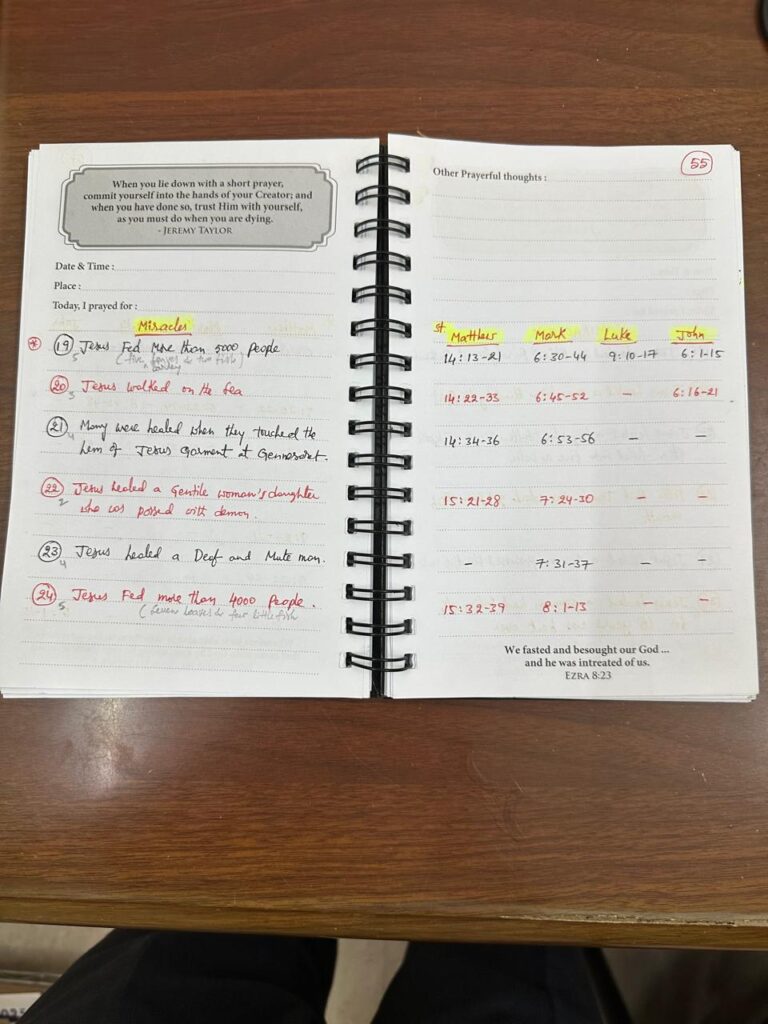 When you lie down with a short prayer,
commit yourself into the hands of your Creator; and
when you have done so, trust Him with yourself,
as you must do when you are dying.
- JEREMY TAYLOR
Date & Time :
Place :
Today, I prayed for :
Miracles
* 19 Jesus Fed More than 5000 People
5 (five loaves & two fish)
barley
20 Jesus walked on the Sea
3
21 Many were healed when they touched the
4 hem of Jesus Garment at Gennesaret.
22 Jesus healed a Gentile woman's daughter
2 who was possed with demon.
23 Jesus healed a Deaf and Mute man.
4
24 Jesus Fed more than 4000 People.
5 (Seven Loaves & few little fish
55
Other Prayerful thoughts :
St. Matthew Mark Luke John
14:13-21 6:30-44 9:10-17 6:1-15
14:22-33 6:45-52 - 6:16-21
14:34-36 6:53-56 - -
15:21-28 7:24-30 - -
- 7:31-37 - -
15:32-39 8:1-13 - -
We fasted and besought our God ...
and he was intreated of us.
EZRA 8:23